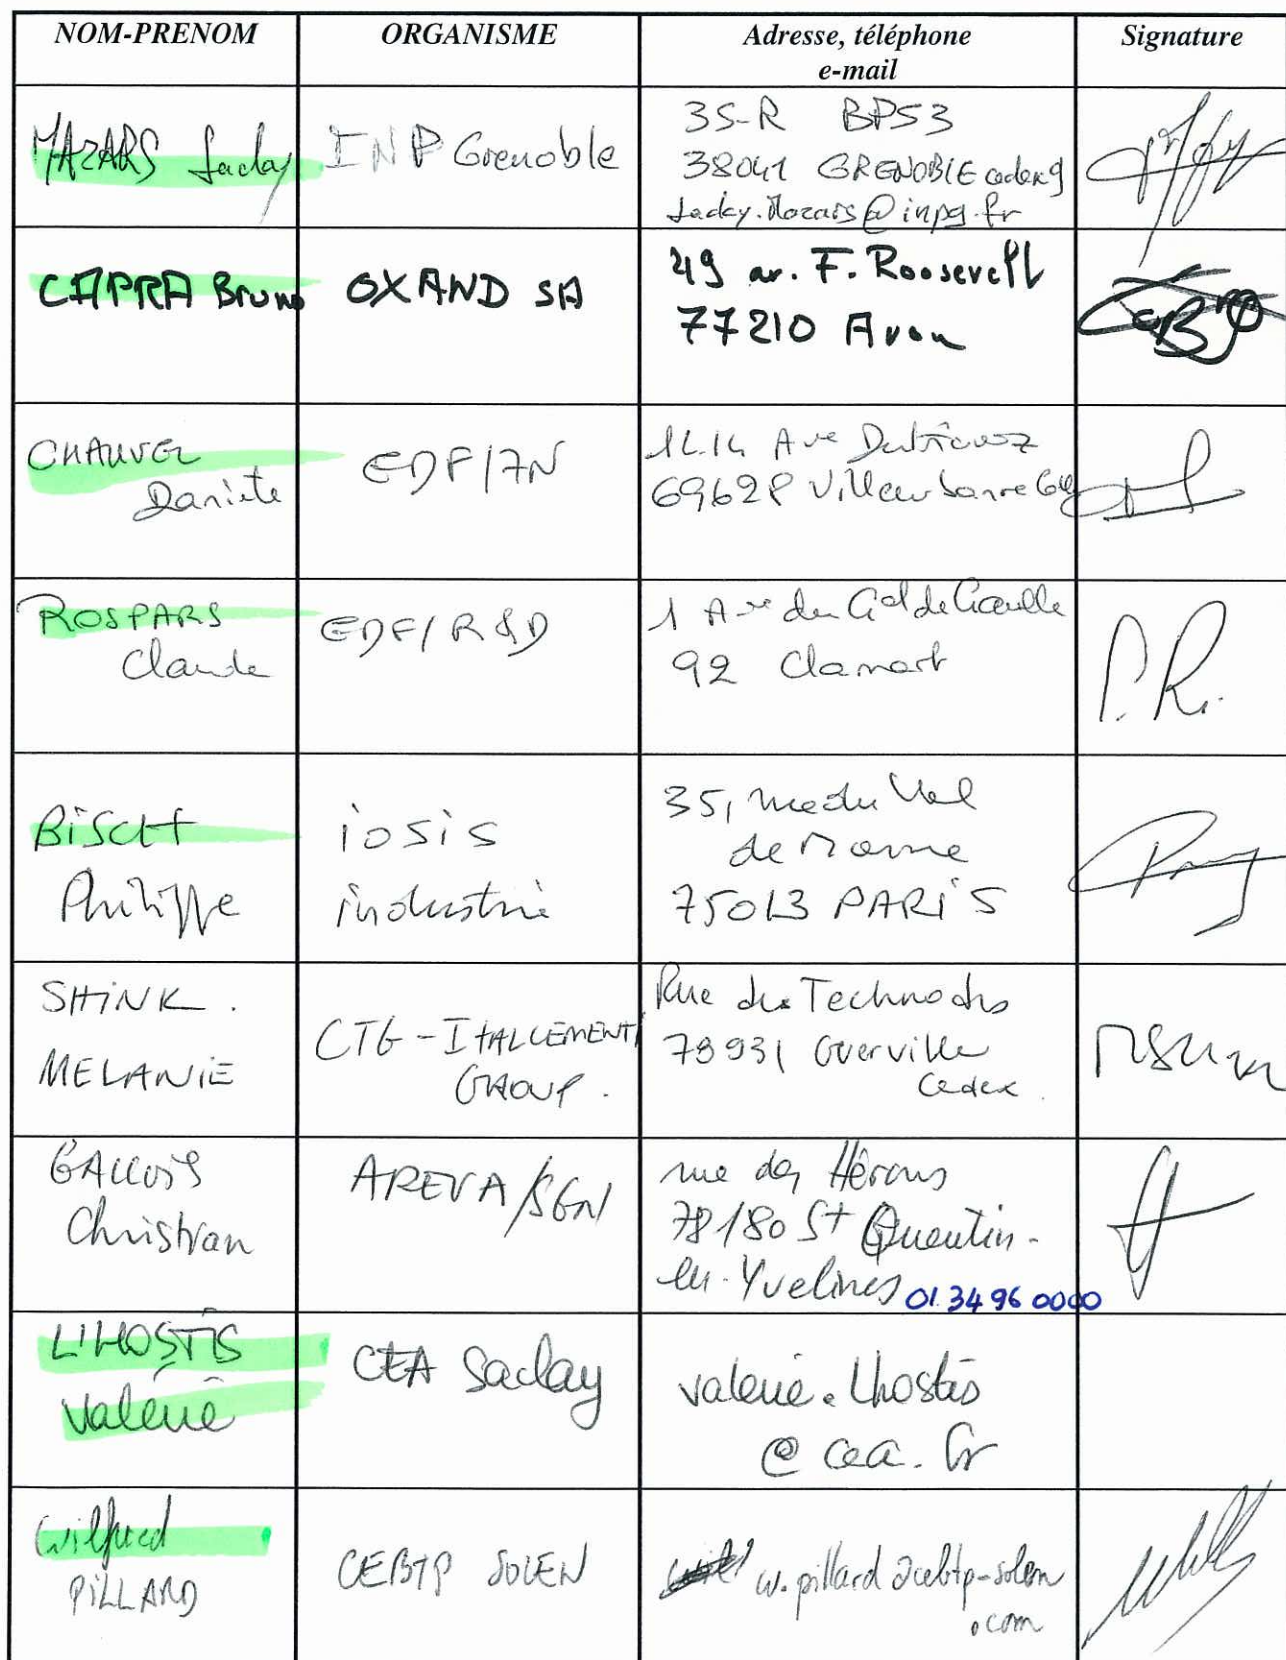 NOM-PRENOM ORGANISME Adresse, téléphone e-mail Signature
MAZARS Jacky INP Grenoble
3S-R BP53
38041 GRENOBLE cedex 9
Jacky.Mazars@inpg.fr
CAPRA Bruno OXAND SA
49 av. F. Roosevelt
77210 Avon
CHAUVEL
Danièle
EDF/7N
12.14 Ave Dutrievoz
69628 Villeurbanne
ROSPARS
Claude
EDF/R&D
1 Ave du Gal de Gaulle
92 Clamart
BISCH
Philippe
iosis
industrie
35, rue du Val
de Marne
75013 PARIS
SHINK.
MELANIE
CTG-ITALCEMENTI
GROUP.
Rue des Technodes
78931 Guerville
Cedex.
GALLOIS
Christian
AREVA/SGN
rue des Hérons
78180 St Quentin-
en-Yvelines 01.34 96 0000
L'HOSTIS
Valérie
CEA Saclay
valerie.lhostis
@cea.fr
Wilfried
PILLARD
CEBTP SOLEN
w.pillard@cebtp-solen
.com